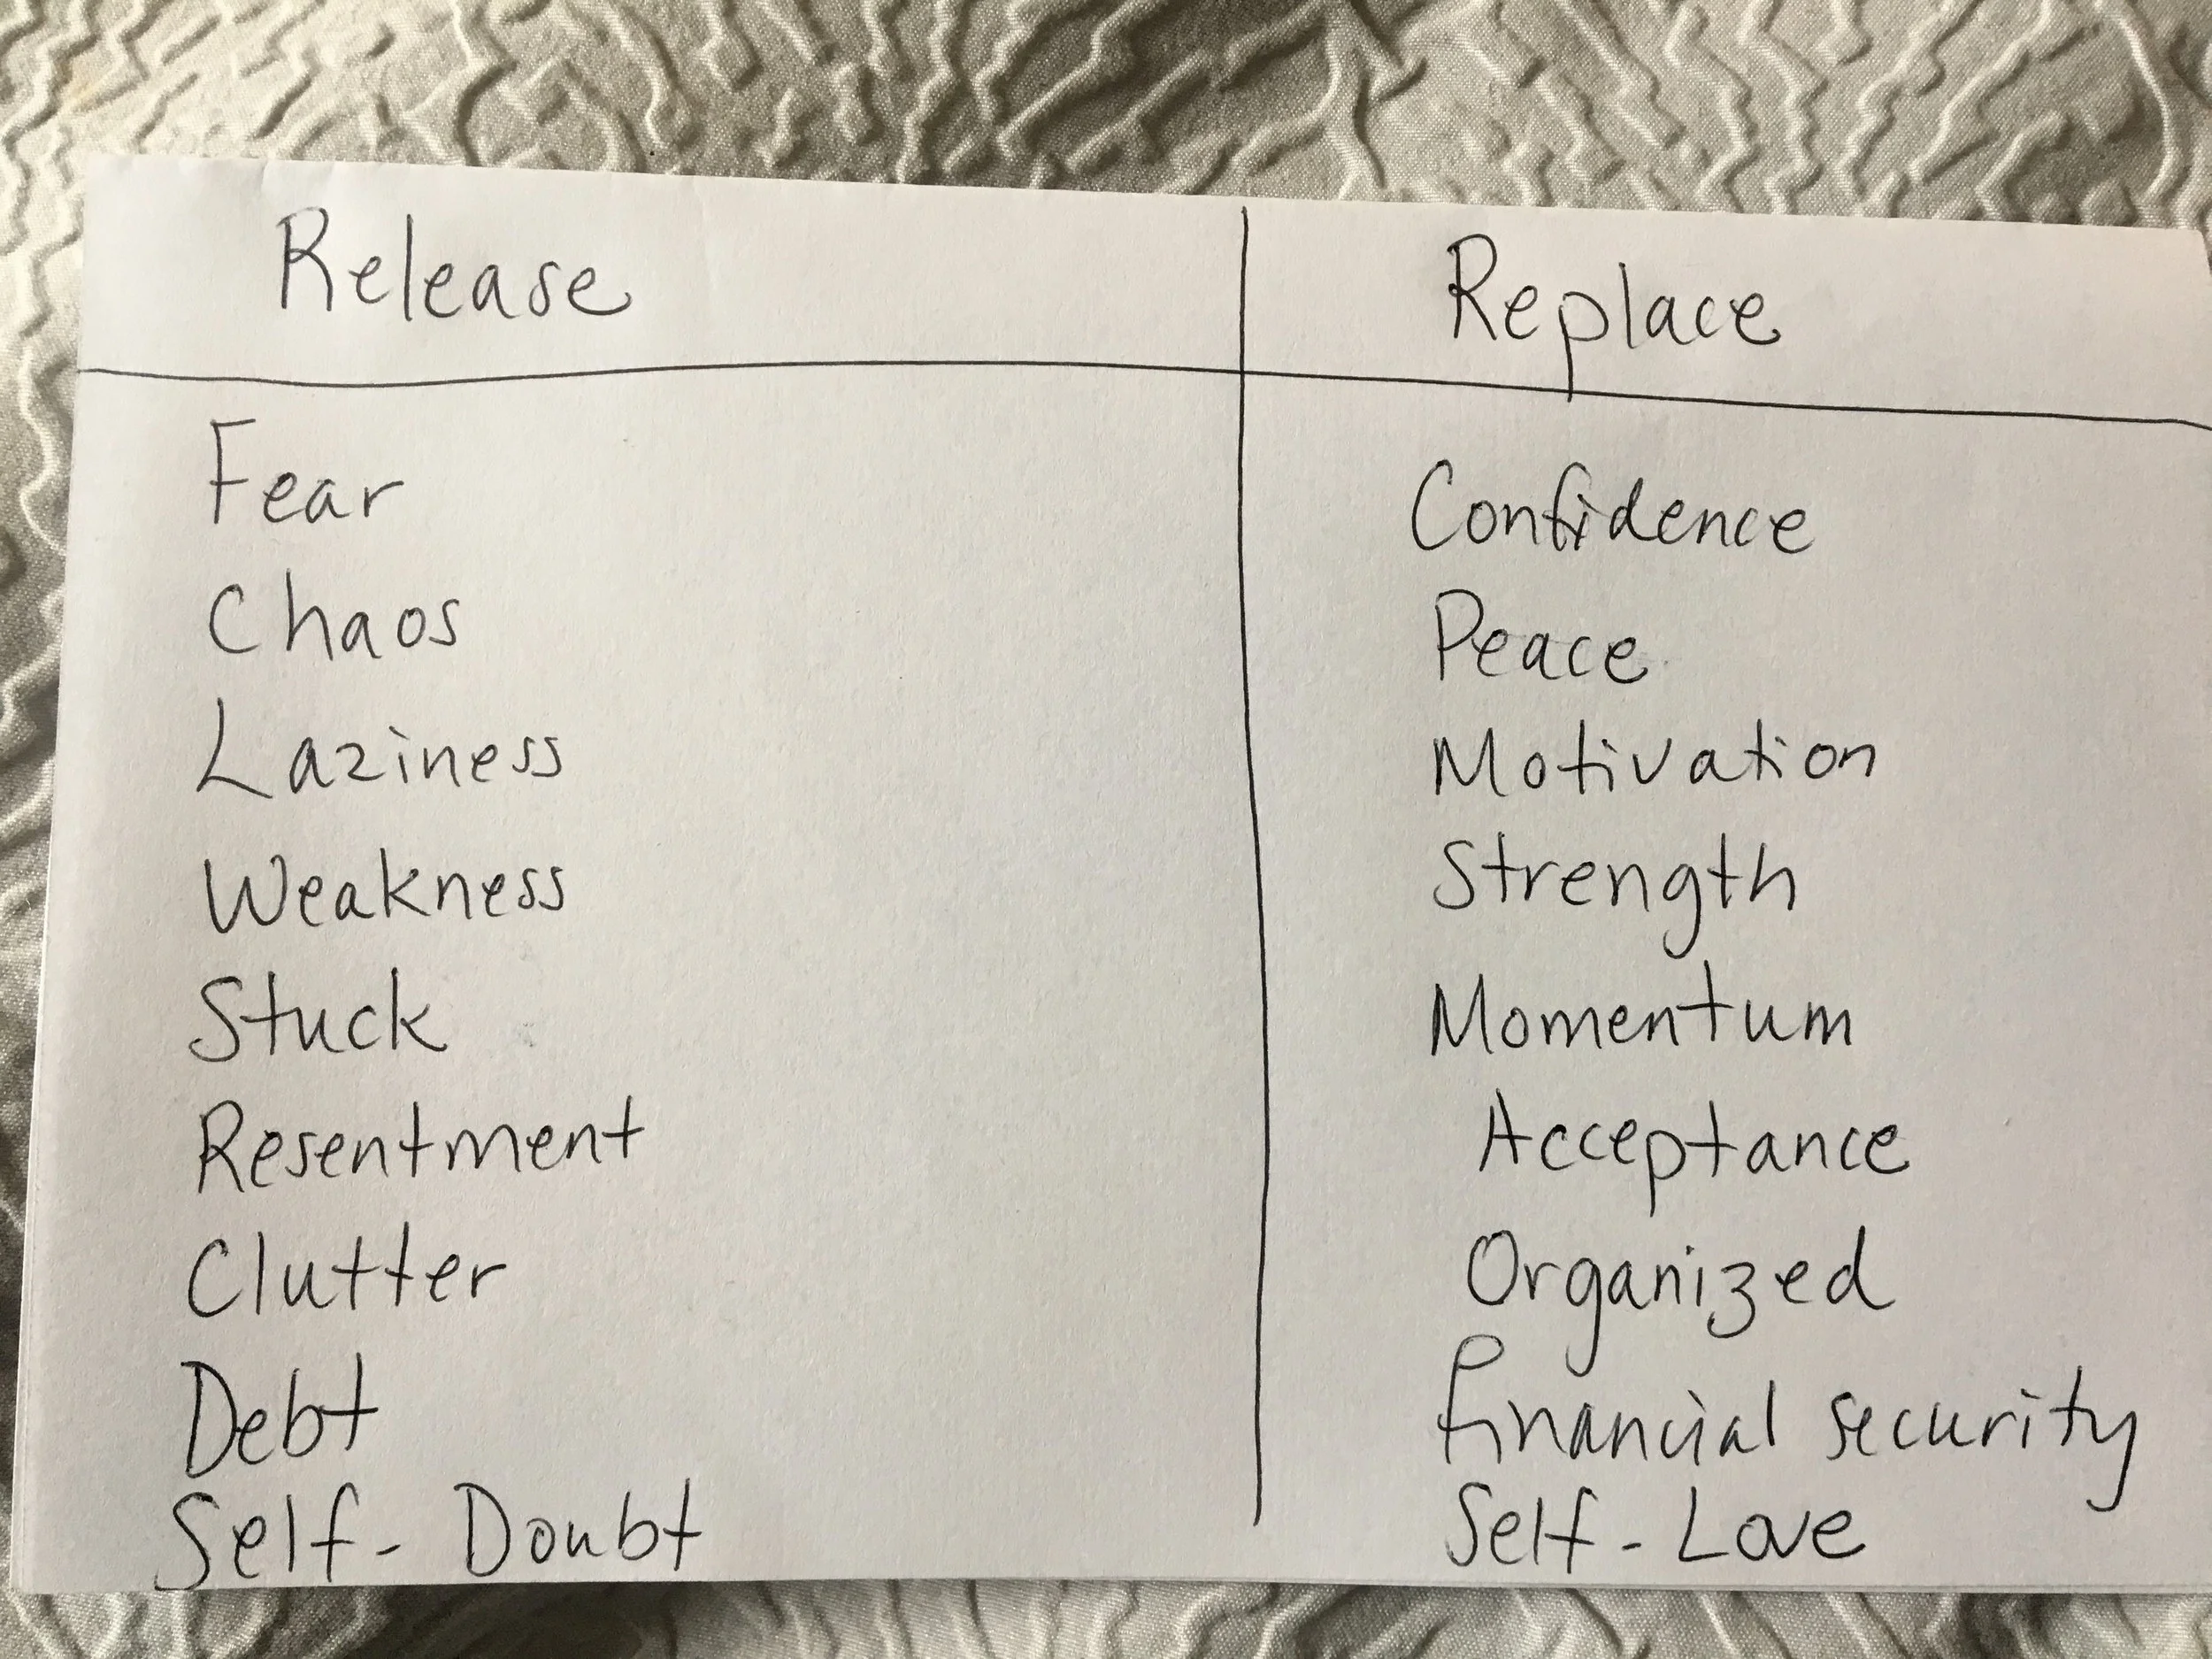 Release Replace
Fear Confidence
Chaos Peace
Laziness Motivation
Weakness Strength
Stuck Momentum
Resentment Acceptance
Clutter Organized
Debt financial security
Self-Doubt Self-Love